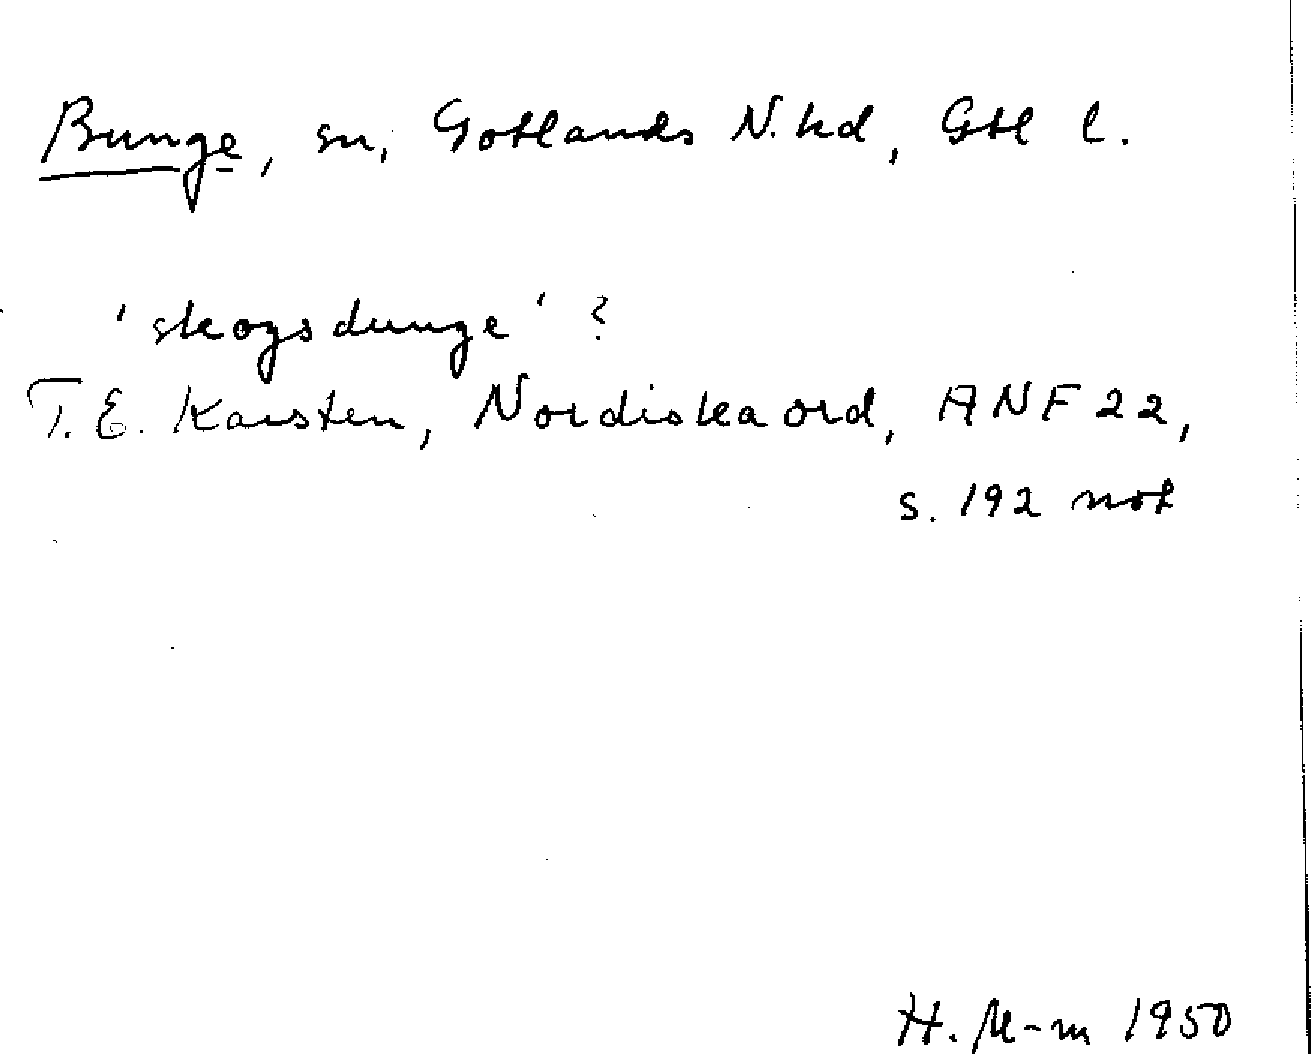 Bunge, sn, Gotlands N. hd, Gtl l.
'skogsdunge' ?
T. E. Karsten, Nordiska ord, ANF 22,
s. 192 not
H. M-m 1950